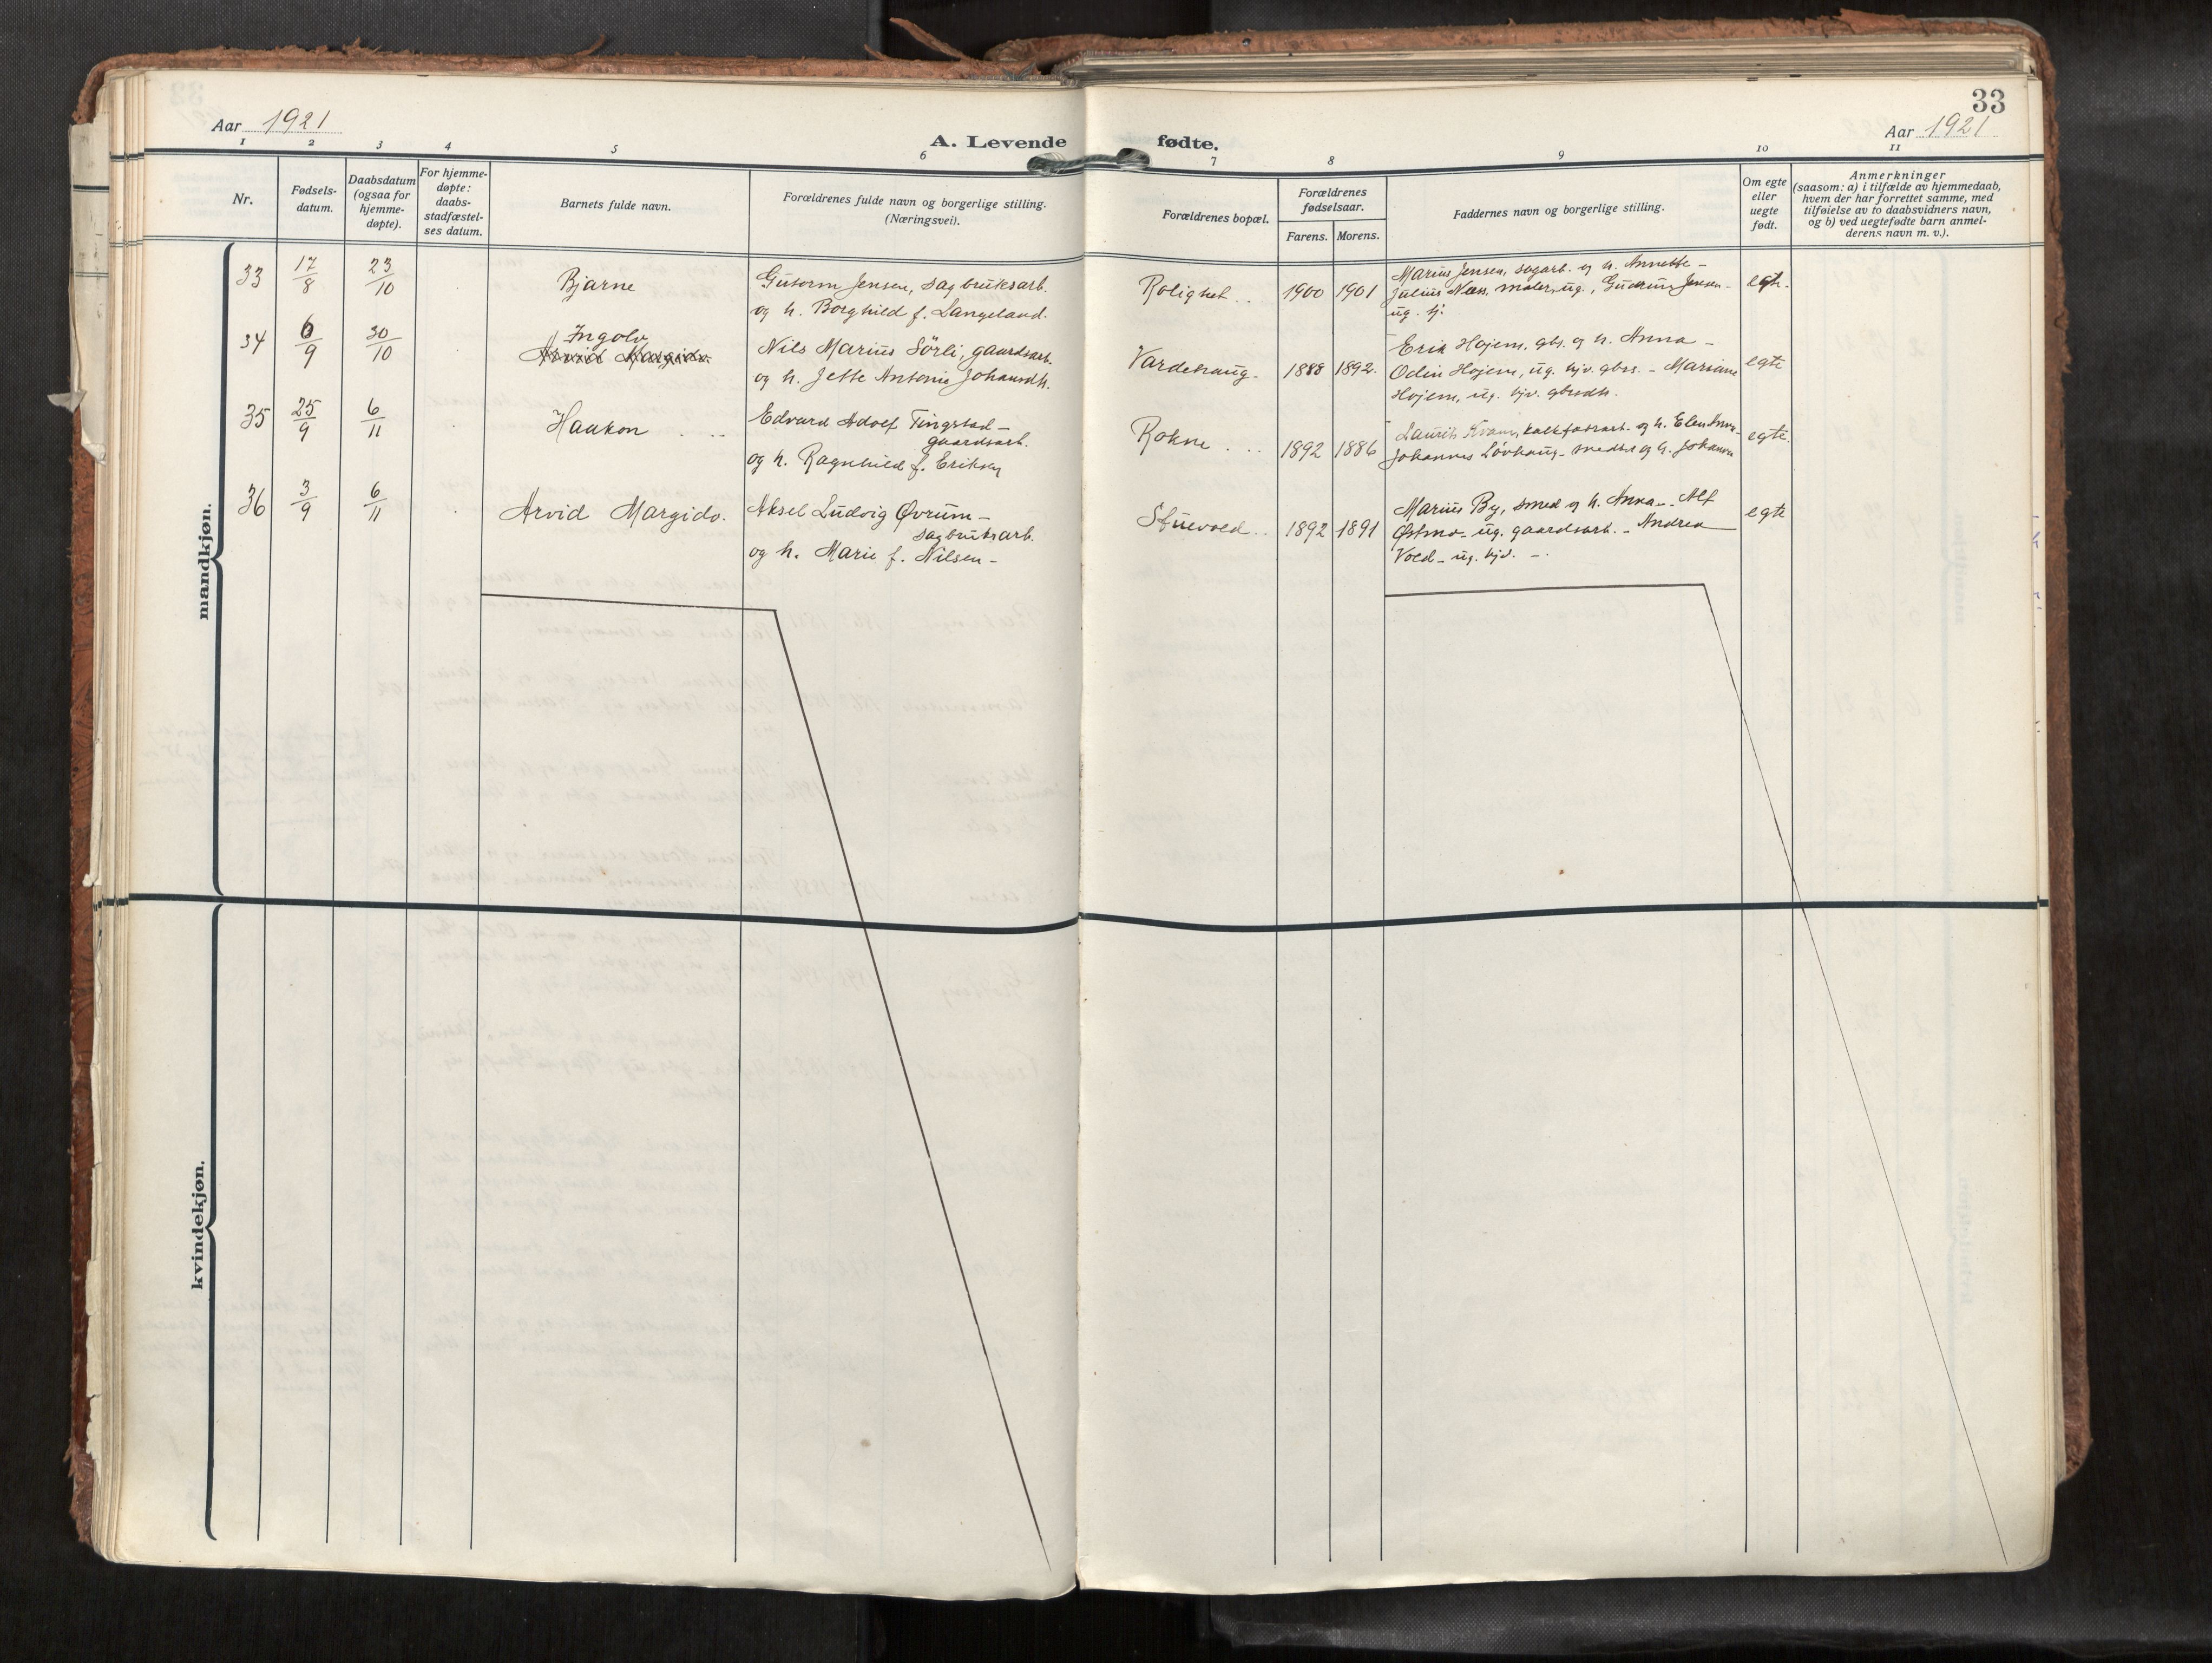 33
Aar 1921
A. Levende fødte.
Aar 1921
1 2 3 4 5 6 7 8 9 10 11
Nr.
Fødsels-
datum.
Daabsdatum
(ogsaa for
hjemme-
døpte).
For hjemme-
døpte:
daabs-
stadfæstel-
ses datum.
Barnets fulde navn.
Forældrenes fulde navn og borgerlige stilling.
(Næringsvei).
Forældrenes bopæl.
Forældrenes
fødselsaar.
Farens. Morens.
Faddernes navn og borgerlige stilling.
Om egte
eller
uegte
født.
Anmerkninger
(saasom: a) i tilfælde av hjemmedaab,
hvem der har forrettet samme, med
tilføielse av to daabsvidners navn,
og b) ved uegtefødte barn anmel-
derens navn m. v.).
mandkjøn.
33 17/8 23/10 Bjarne
Gutorm Jensen, sagbruksarb.
og h. Borghild f. Langeland.
Rolighet .. 1900 1901
Marius Jensen, sagarb. og h. Annette –
Julius Næss, maler, ug., Gudrun Jensen –
ug. hj.
egte.
34 6/9 30/10 Ingolv
Arvid Margido.
Nils Marius Sörli, gaardsarb.
og h. Jette Antonie Johansdt.
Vardehaug. 1888 1892.
Erik Hojem, gbr. og h. Anna –
Odin Hojem, ug. hjv. gbrs. – Mariane
Hojem, ug. hjv. gbrsdt.
egte
35 25/9 6/11 Haakon ..
Edvard Adolf Tingstad –
gaardsarb.
og h. Ragnhild f. Eriksen
Rokne ... 1892 1886
Laurits Kvam, kalkfabrarb. og h. Elen Anna –
Johannes Lövhaug – snedker og h. Johanna
egte.
36 3/9 6/11 Arvid Margido.
Aksel Ludvig Øvrum –
sagbruksarb.
og h. Marie f. Nilsen –
Stuevold .. 1892 1891
Marius By, smed og h. Anna – Alf
Østmo – ug. gaardsarb. – Andrea
Vold – ug. hjv. –.
egte
kvindekjøn.